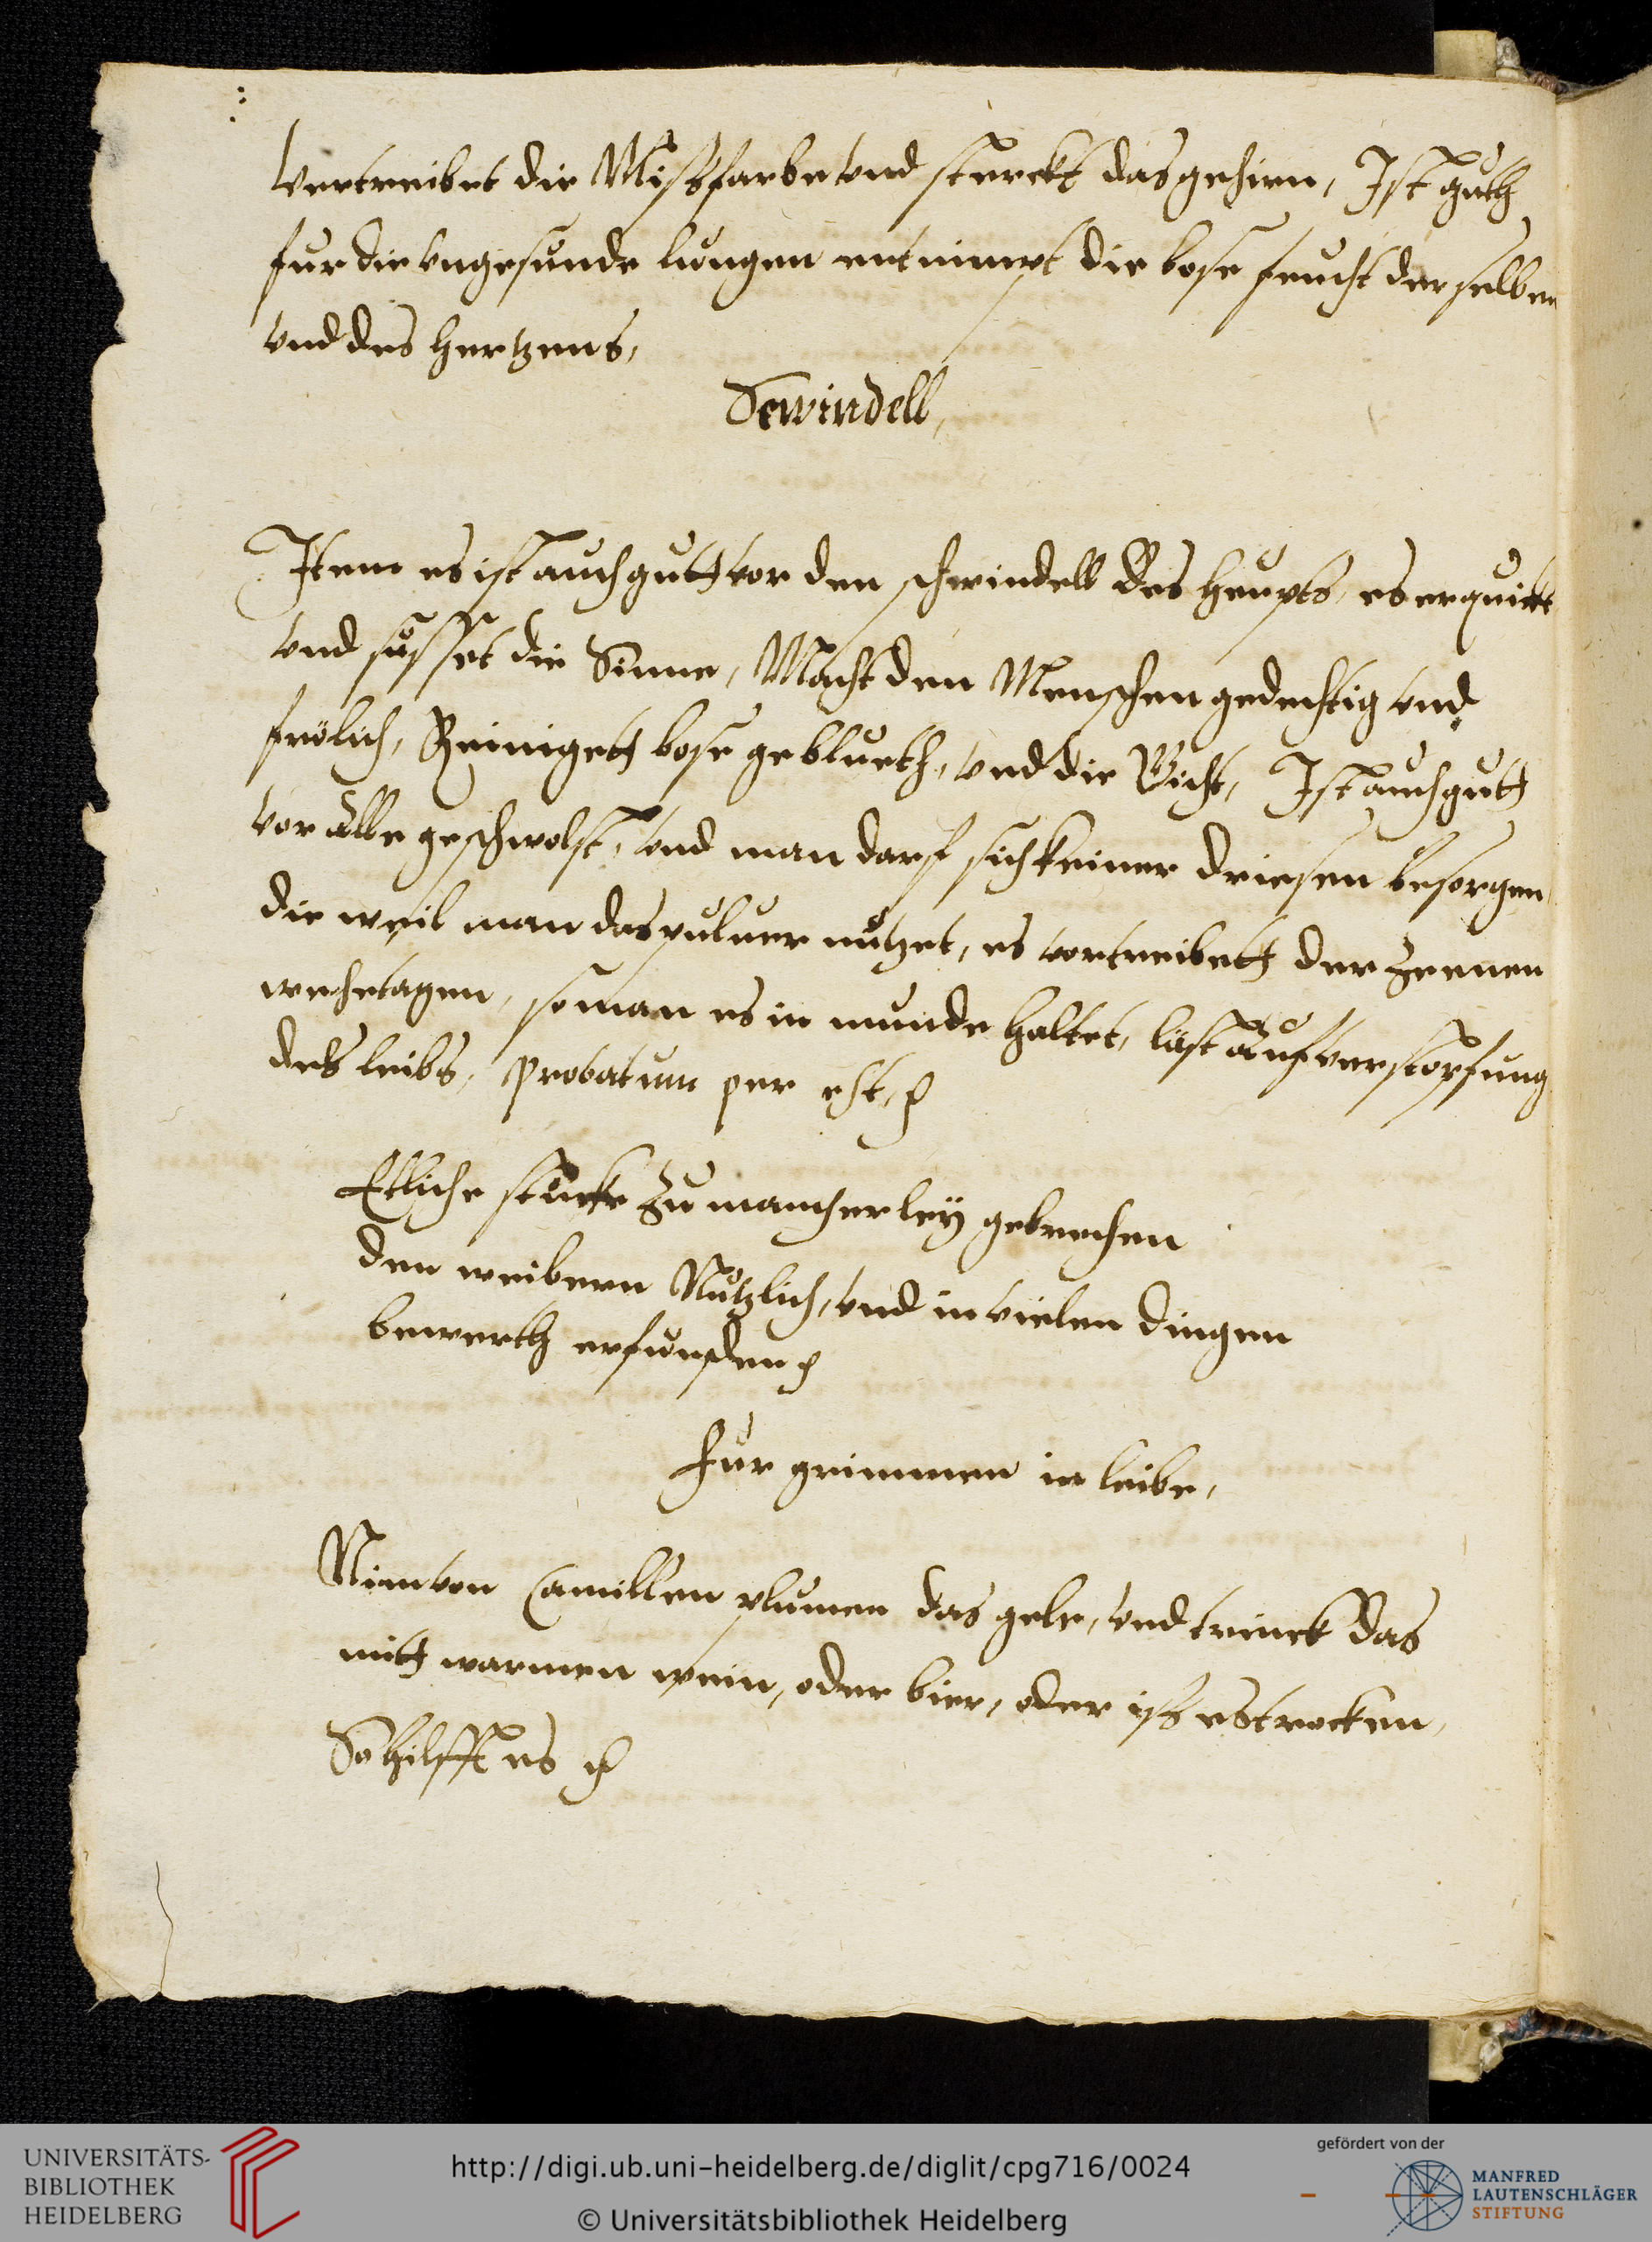 vertreibet die Mißfarbe vnd sterckt das gehirn, Ist guth
fur die vngesunde lungen entnimpt die bose feucht derselben
vnd des hertzens,
Scwindell,
Item es ist auch gutt vor den schwindell des heupts, es erquickt
vnd süsset die Sinne, Macht den Menschen gedechtig vnd
frölich, Reinigett bose geblueth, vnd die Gicht, Ist auch gutt
vor alle geschwolst, vnd man darf sich keiner driesen besorgen
die weil man das puluer nützet, es vortreibett der Zeenen
wehetagen, so man es in munde haltet, läst auf verstopfung
des leibs, probatum per est,
Etliche stücke zu mancherley gebrechen
den weibern Nützlich, vnd in vielen dingen
bewerth erfunden
Fur grimmen in leibe,
Nim von Camillen plumen das gele, vnd trinck das
mitt warmen wein, oder bier, oder iß es trocken,
So hilfft es
UNIVERSITÄTS-
BIBLIOTHEK
HEIDELBERG
http://digi.ub.uni-heidelberg.de/diglit/cpg716/0024
© Universitätsbibliothek Heidelberg
gefördert von der
MANFRED
LAUTENSCHLÄGER
STIFTUNG